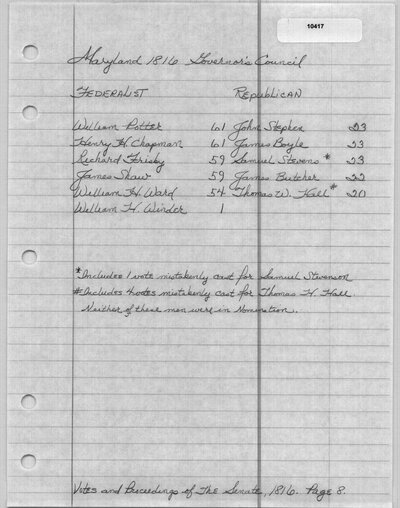 10417
Maryland 1816 Governor's Council
FEDERALIST REPUBLICAN
William Potter 61 John Stephen 23
Henry H. Chapman 61 James Boyle 23
Richard Frisby 59 Samuel Stevens * 23
James Shaw 59 James Butcher 22
William H. Ward 54 Thomas W. Hall # 20
William H. Winder 1
*Includes 1 vote mistakenly cast for Samuel Stevenson
#Includes 4 votes mistakenly cast for Thomas H. Hall.
Neither of these men were in Nomination.
Votes and Proceedings of The Senate, 1816. Page 8.